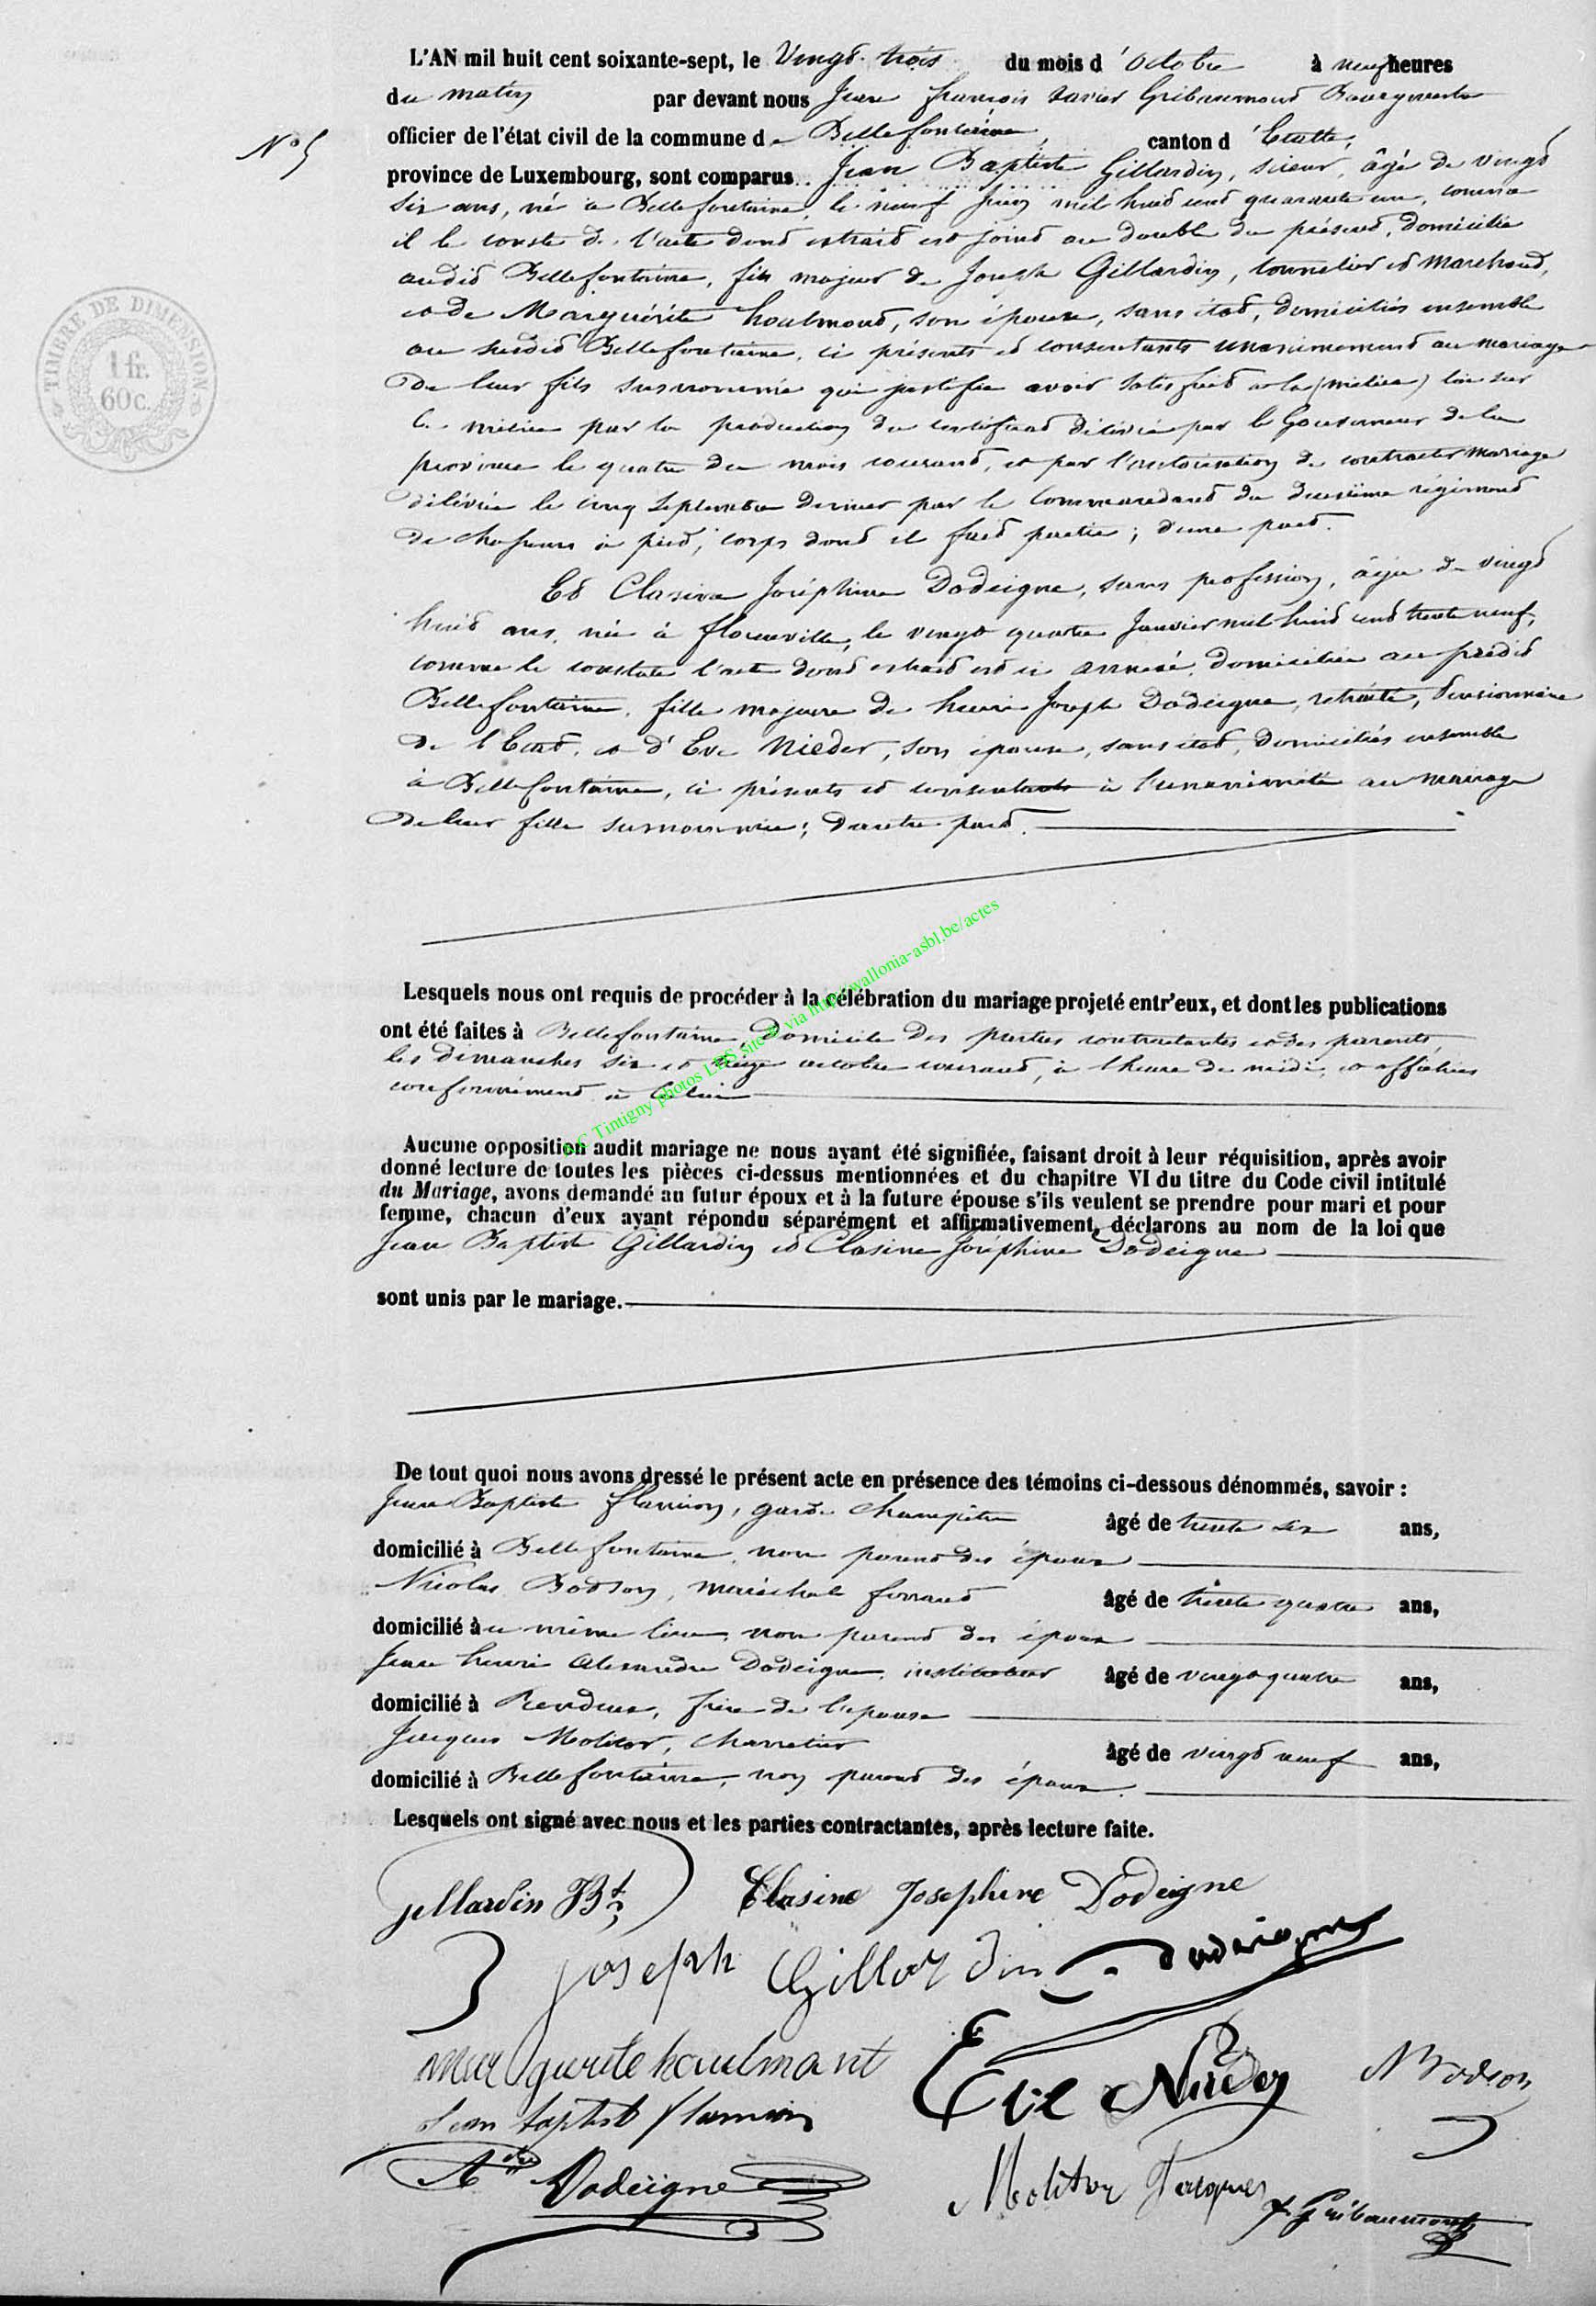 L'AN mil huit cent soixante-sept, le Vingt trois du mois d'octobre à neuf heures
du matin par devant nous Jean françois Xavier Gribaumont Bourgmestre
N° 5
officier de l'état civil de la commune de Bellefontaine, canton d'Etalle,
province de Luxembourg, sont comparus Jean Baptiste Gillardin, scieur, âgé de vingt
six ans, né à Bellefontaine, le neuf Juin mil huit cent quarante un, comme
il le conste de l'acte dont extrait est joint au double du présent, domicilié
audit Bellefontaine, fils majeur de Joseph Gillardin, tonnelier et marchand,
et de Marguérite houlmont, son épouse, sans état, domiciliés ensemble
au susdit Bellefontaine, ci présents et consentants unanimement au mariage
de leur fils susnommé qui justifie avoir satisfait à la (milice) loi sur
la milice par la production du certificat délivré par le Gouverneur de la
province le quatre du mois courant, et par l'autorisation de contracter mariage
délivrée le cinq Septembre dernier par le Commandant du deuxième régiment
de chasseurs à pied, corps dont il fait partie; d'une part.
Et Clasine Joséphine Dodeigne, sans profession, âgée de vingt
huit ans, née à florenville, le vingt quatre Janvier mil huit cent trente neuf,
comme le constate l'acte dont extrait est ci annexé, domiciliée au prédit
Bellefontaine, fille majeure de henri Joseph Dodeigne, retraité, Pensionnaire
de l'Etat, et d'Eve Nieder, son épouse, sans état, domiciliés ensemble
à Bellefontaine, ci présents et consentants à l'unanimité au mariage
de leur fille susnommée; d'autre part.
Lesquels nous ont requis de procéder à la célébration du mariage projeté entr'eux, et dont les publications
ont été faites à Bellefontaine, domicile des parties contractantes et des parents,
les dimanches six et treize octobre courant, à l'heure de midi, et affichées
conformément à la loi
Aucune opposition audit mariage ne nous ayant été signifiée, faisant droit à leur réquisition, après avoir
donné lecture de toutes les pièces ci-dessus mentionnées et du chapitre VI du titre du Code civil intitulé
du Mariage, avons demandé au futur époux et à la future épouse s'ils veulent se prendre pour mari et pour
femme, chacun d'eux ayant répondu séparément et affirmativement, déclarons au nom de la loi que
Jean Baptiste Gillardin et Clasine Joséphine Dodeigne
sont unis par le mariage.
De tout quoi nous avons dressé le présent acte en présence des témoins ci-dessous dénommés, savoir :
Jean Baptiste flamion, garde champêtre âgé de trente six ans,
domicilié à Bellefontaine, non parent des époux
Nicolas Bodson, maréchal ferrant âgé de trente quatre ans,
domicilié au même lieu, non parent des époux
Jean henri Alexandre Dodeigne, instituteur âgé de vingt quatre ans,
domicilié à Rendeux, frère de l'épouse
Jacques Molitor, charretier âgé de vingt neuf ans,
domicilié à Bellefontaine, non parent des époux.
Lesquels ont signé avec nous et les parties contractantes, après lecture faite.
gillardin JBte Clasine Josephine Dodeigne
Joseph Gillardin Dodeigne
marguerite houlmont Eve Nieder NBodson
Jean baptist flamion
Adre Dodeigne Molitor Jacques
F. Gribaumont
TIMBRE DE DIMENSION
1 fr.
60c.
A.C Tintigny photos LDS site via http://wallonia-asbl.be/actes